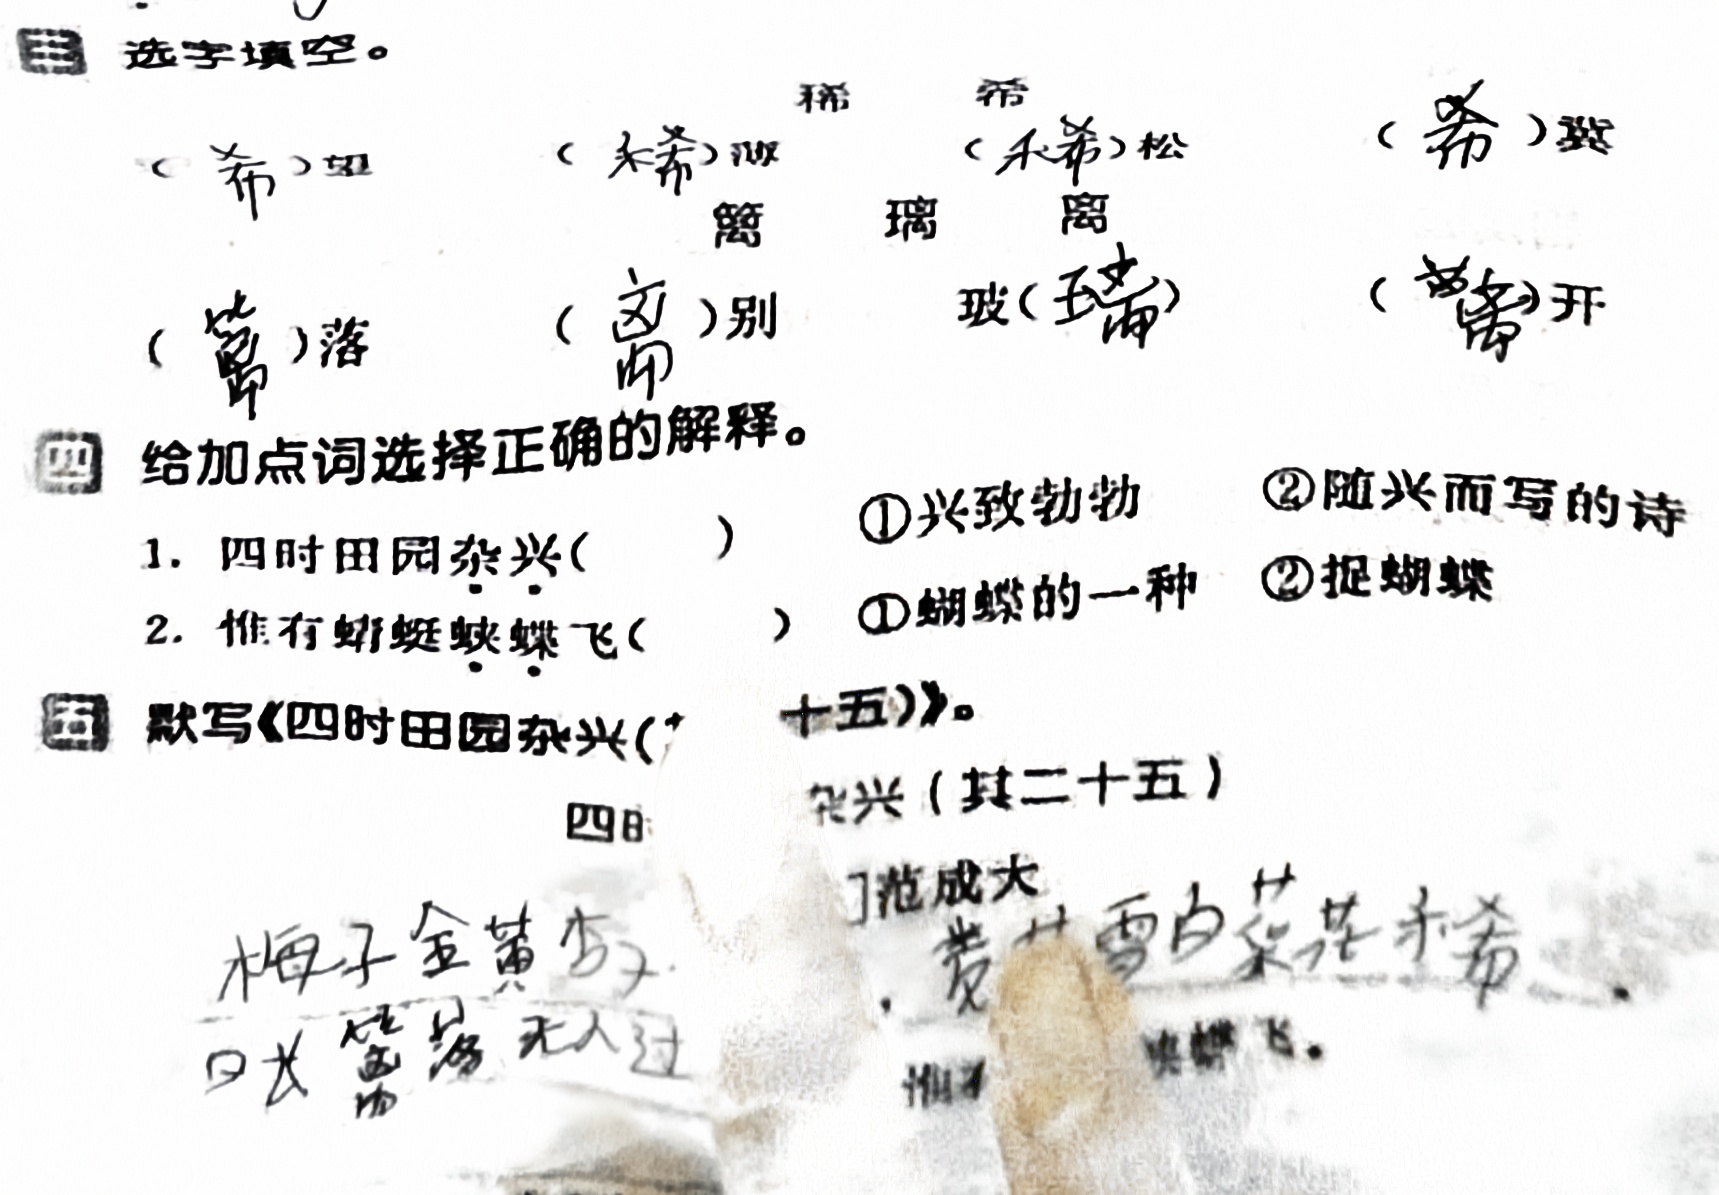 三 选字填空。
稀 希
(希)望 (稀)疏 (稀)松 (希)冀
篱 璃 离
(篱)落 (离)别 玻(璃) (离)开
四 给加点词选择正确的解释。
1. 四时田园杂兴( ) ①兴致勃勃 ②随兴而写的诗
2. 惟有蜻蜓蛱蝶飞( ) ①蝴蝶的一种 ②捉蝴蝶
五 默写《四时田园杂兴( 十五)》。
四时 杂兴(其二十五)
范成大
梅子金黄杏子 . 麦 雪白菜花稀 .
日长篱落无人过 惟 蛱蝶飞.